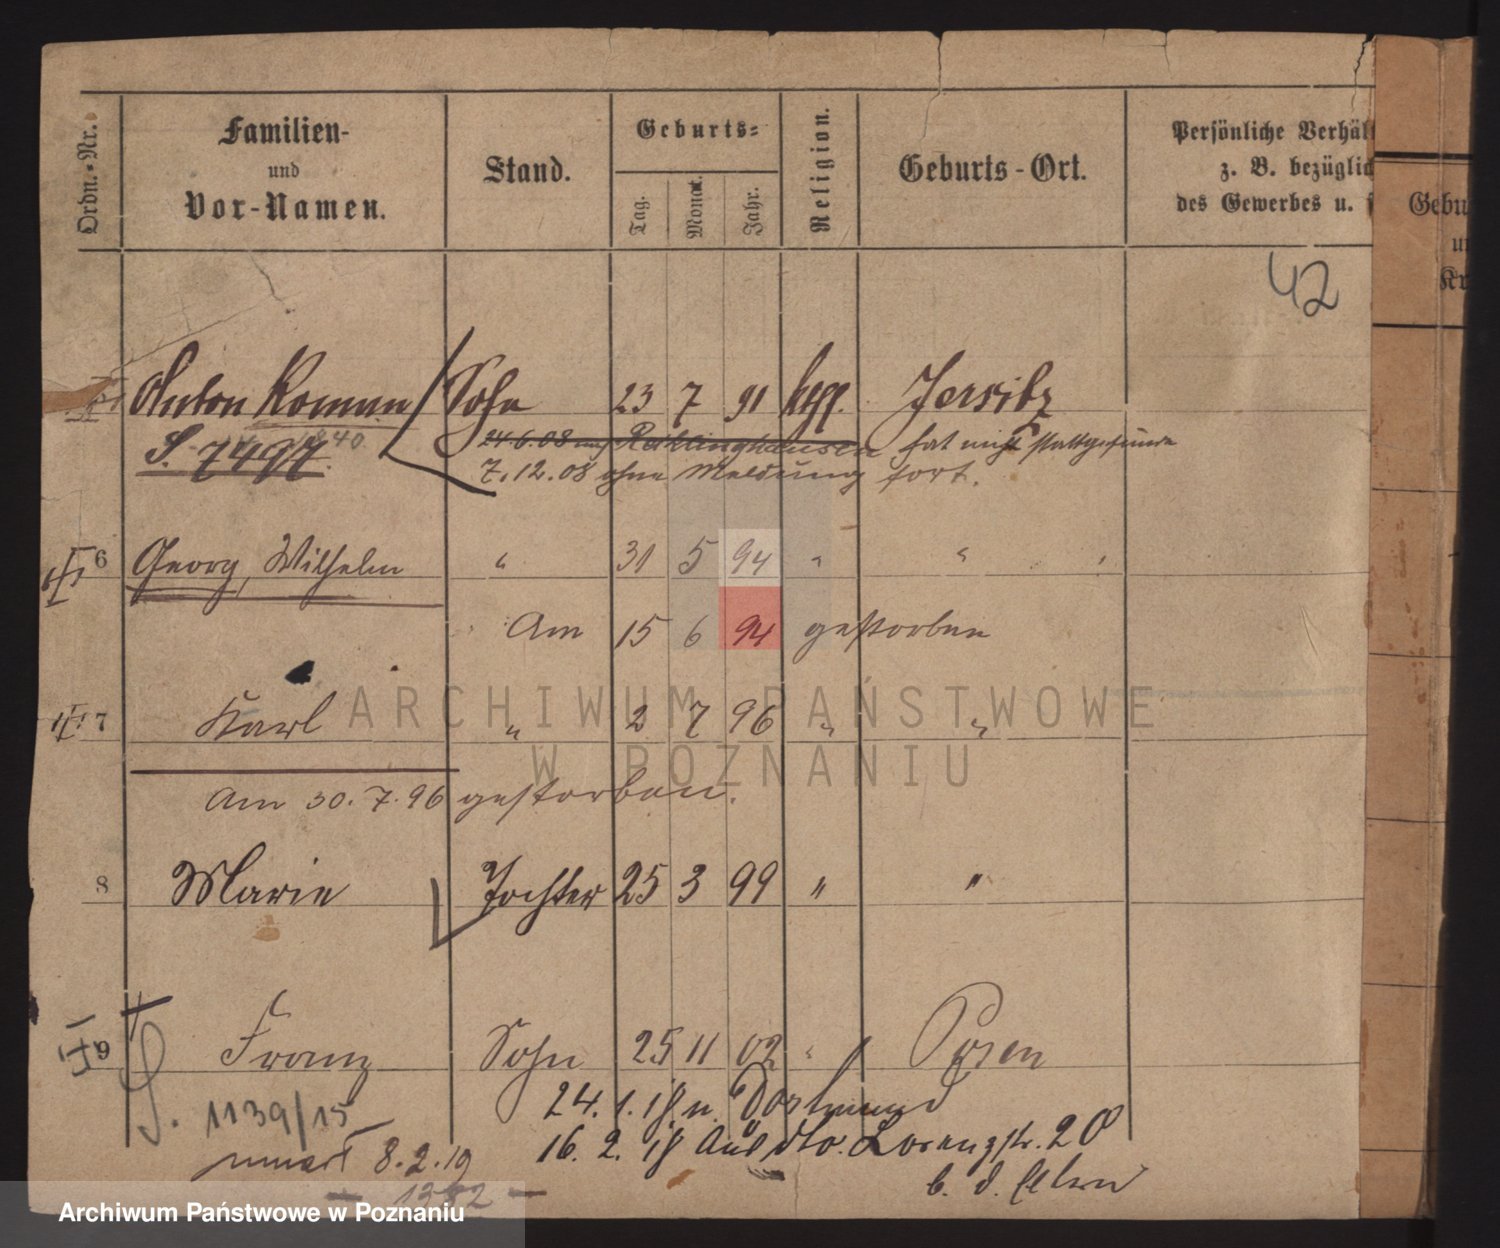 Ordn.-Nr.
Familien-
und
Vor-Namen.
Stand.
Geburts-
Tag.
Monat.
Jahr.
Religion.
Geburts-Ort.
Persönliche Verhäl
z. B. bezüglic
des Gewerbes u.
Gebu
u
Kr
42
Anton Roman Sohn 23 7 91 kath. Jersitz
S. 7497. 24.6.08 nach Recklinghausen hat nicht stattgefunden
7.12.08 ohne Meldung fort.
6 Georg, Wilhelm " 31 5 94 " "
Am 15 6 94 gestorben
7 Karl " 2 7 96 " "
Am 30.7.96 gestorben.
8 Marie Tochter 25 3 99 " "
9 Franz Sohn 25 11 02 " Posen
24.1.18 n. Dortmund
S. 1139/15
16.2.18 Aus dto. Lorenzstr. 20
8.2.19
b. d. Eltern
1352
ARCHIWUM PAŃSTWOWE
W POZNANIU
Archiwum Państwowe w Poznaniu